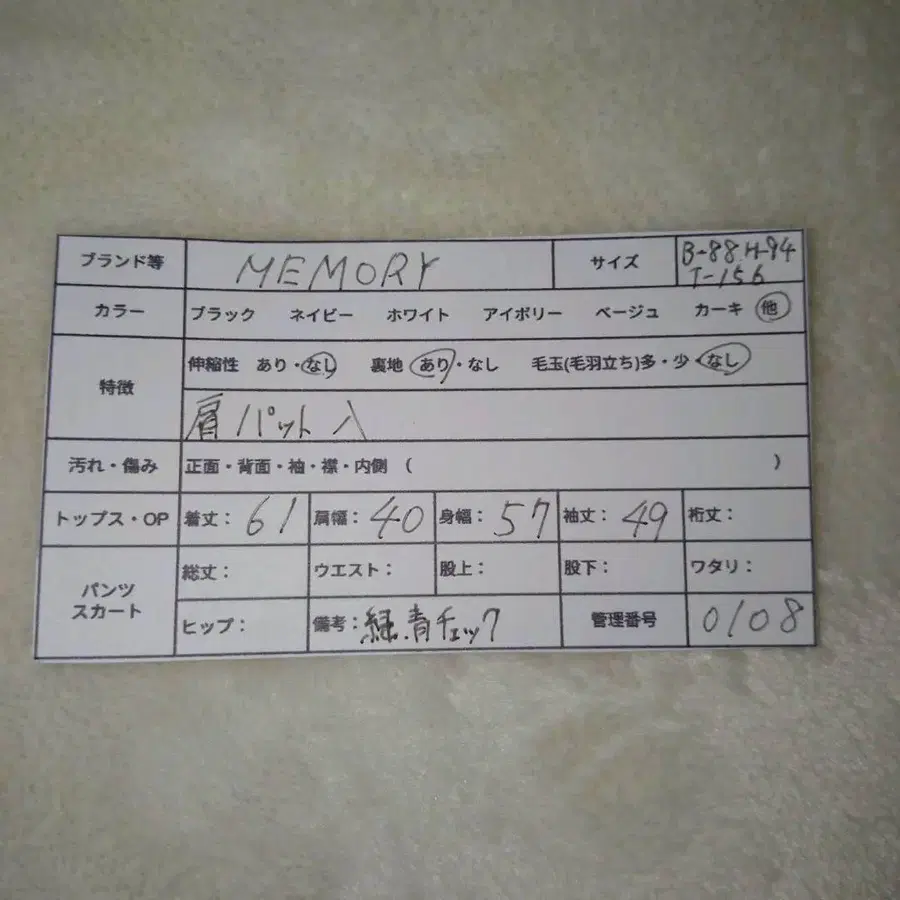 ブランド等 MEMORY サイズ B-88 H-94
T-156
カラー ブラック ネイビー ホワイト アイボリー ベージュ カーキ 他
特徴 伸縮性 あり・なし 裏地 あり・なし 毛玉(毛羽立ち)多・少・なし
肩パット入
汚れ・傷み 正面・背面・袖・襟・内側 ( )
トップス・OP 着丈: 61 肩幅: 40 身幅: 57 袖丈: 49 裄丈:
パンツ スカート 総丈: ウエスト: 股上: 股下: ワタリ:
ヒップ: 備考: 緑、青チェック 管理番号 0108